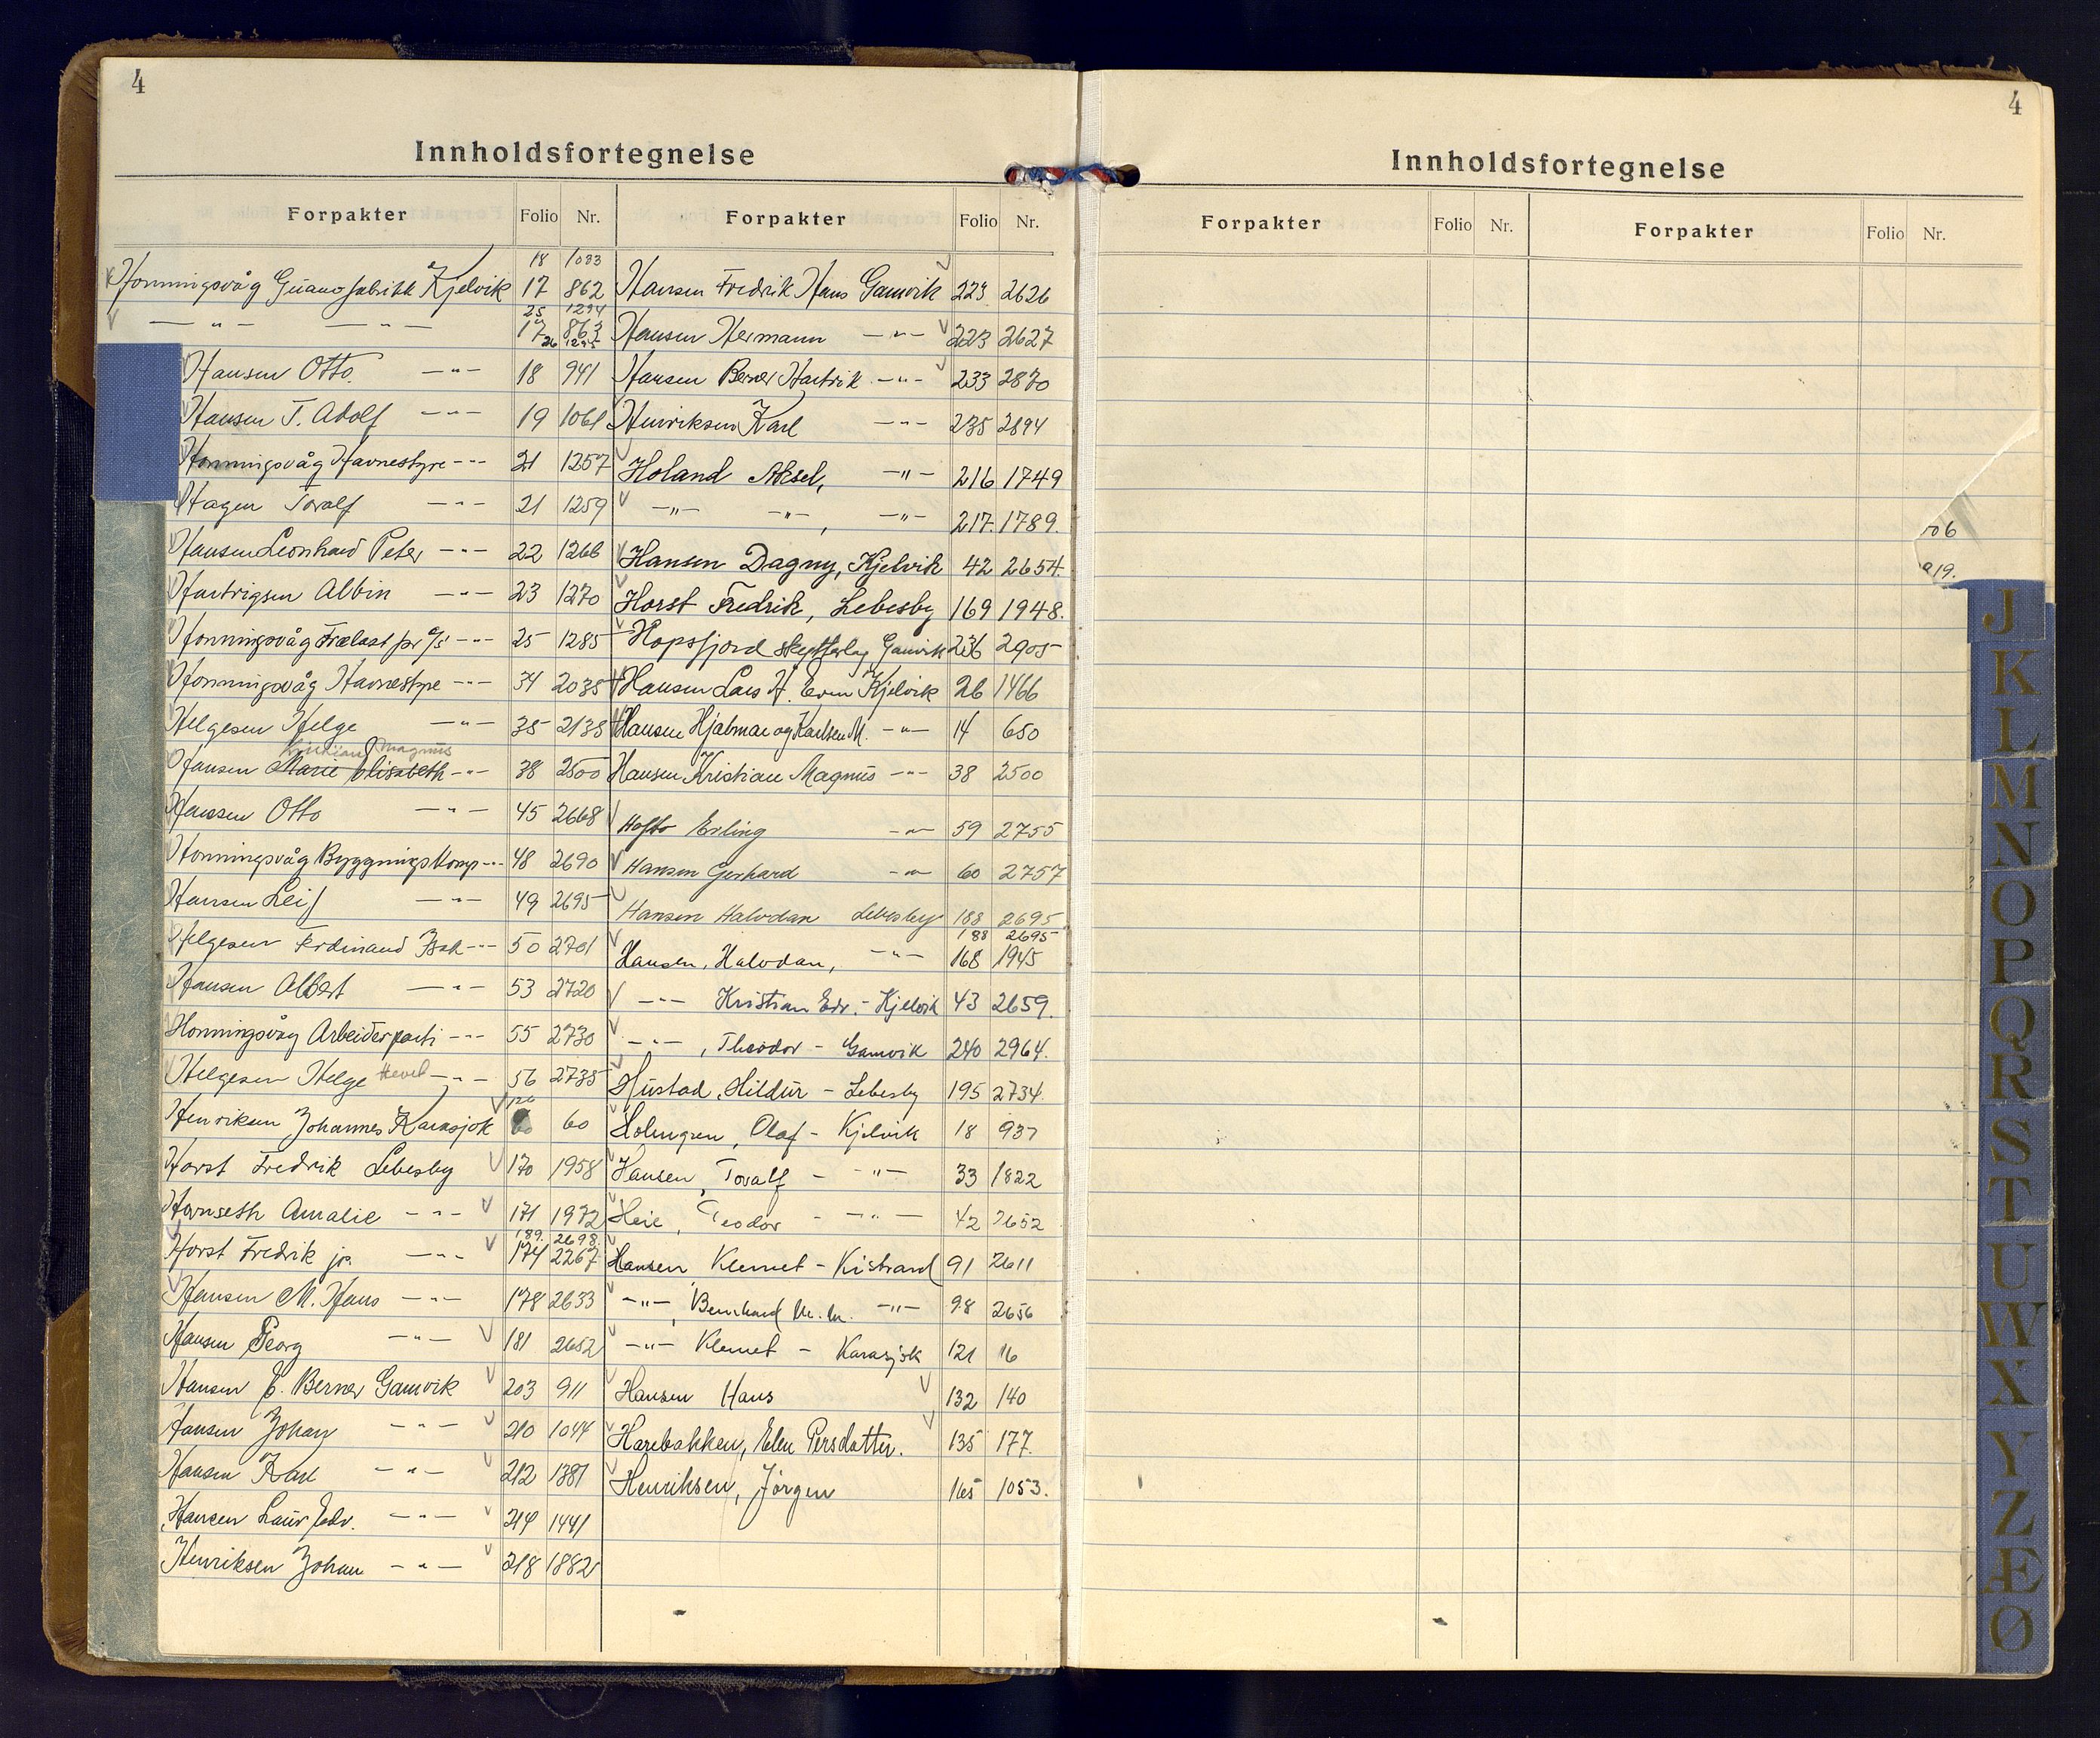 4
Innholdsfortegnelse
Forpakter Folio Nr.
18 1083
Honningsvåg Guanofabrikk Kjelvik 17 862
25 1294
— " — — " — 17 863
26 1295
Hansen Otto — " — 18 941
Hansen T. Adolf — " — 19 1061
Honningsvåg Havnestyre — " — 21 1257
Hagen Toralf — " — 21 1259
Hansen Leonhard Peter — " — 22 1266
Hartvigsen Albin — " — 23 1270
Honningsvåg Trelast — " — 25 1285
Honningsvåg Havnestyre — " — 34 2035
Helgesen Helge — " — 35 2135
Kristian Magnus
Hansen Marie Elisabeth — " — 38 2500
Hanssen Otto — " — 45 2668
Honningsvåg Byggningskomp — " — 48 2690
Hansen Leif — " — 49 2695
Helgesen Ferdinand Isak — " — 50 2701
Hansen Albert — " — 53 2720
Honningsvåg Arbeiderparti — " — 55 2730
Helgesen Helge — " — 56 2735
Henriksen Johannes Karasjok 60
Horst Fredrik Lebesby 170 1958
Hovnseth Amalie — " — 171 1972
189. 2698.
Horst Fredrik jr. — " — 174 2267
Hansen M. Hans — " — 178 2633
Hansen Georg — " — 181 2652
Hansen E. Berner Gamvik 203 911
Hansen Johan — " — 210 1044
Hansen Karl — " — 212 1381
Hansen Laur Edv. — " — 214 1441
Henriksen Johan — " — 218 1882
Forpakter Folio Nr.
Hansen Fredrik Hans Gamvik 223 2626
Hansen Hermann — " — 223 2627
Hansen Berner Hartvik — " — 233 2870
Henriksen Karl — " — 235 2894
Holand Aksel, — " — 216 1749
— " — — " — , — " — 217. 1789.
Hansen Dagny, Kjelvik 42 2654.
Horst Fredrik, Lebesby 169 1948.
Hopsfjord Gamvik 236 2905
Hansen Lars H. Even Kjelvik 26 1466
Hansen Hjalmar og Karlsen M. — " — 14 650
Hansen Kristian Magnus — " — 38 2500
Hofto Erling — " — 59 2755
Hansen Gerhard — " — 60 2757
Hansen Halvdan Lebesby 188 2695
188 2695
Hansen, Halvdan, — " — 168 1945
— " — Kristian Edv. - Kjelvik 43 2659.
— " — , Theodor - Gamvik 240 2964.
Hustad, Hildur - Lebesby 195 2734.
Holmgren, Olaf - Kjelvik 18 937
Hansen, Toralf - — " — 33 1822
Heie, Teodor - — " — 42 2652
Hansen Klemet - Kistrand 91 2611
— " — , Bernhard — " — 98 2656
— " — Klemet - Karasjok 121 16
Hansen Hans 132 140
Harebakken, Elen Persdatter. 135 177.
Henriksen, Jörgen 165 1053.
4
Innholdsfortegnelse
Forpakter Folio Nr. Forpakter Folio Nr.
J
K
L
M
N
O
P
Q
R
S
T
U
W
X
Y
Z
Æ
Ø